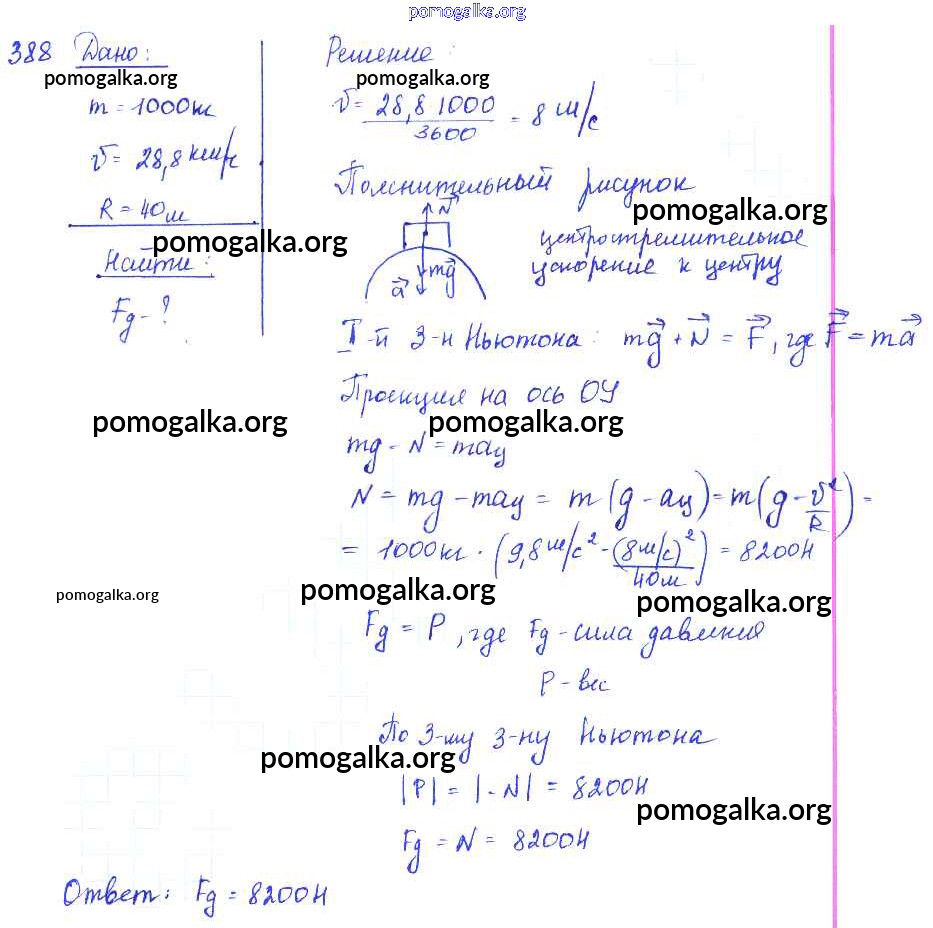 pomogalka.org
388 Дано:
pomogalka.org
m = 1000кг
v = 28,8 км/ч
R = 40м
pomogalka.org
Найти:
Fg - ?
Решение:
pomogalka.org
v = 28,8 1000 / 3600 = 8 м/с
Пояснительный рисунок
pomogalka.org
N
mg
a
центростремительное
ускорение к центру
I-й З-н Ньютона: mg + N = F, где F = ma
Проекция на ось ОУ
pomogalka.org pomogalka.org
mg - N = maц
N = mg - maц = m (g - aц) = m (g - v²/R) =
= 1000кг · (9,8м/с² - (8м/с)²/40м) = 8200Н
pomogalka.org pomogalka.org pomogalka.org
Fg = P, где Fg - сила давления
P - вес
По 3-му З-ну Ньютона
pomogalka.org
|P| = |-N| = 8200Н
pomogalka.org
Fg = N = 8200Н
Ответ: Fg = 8200Н